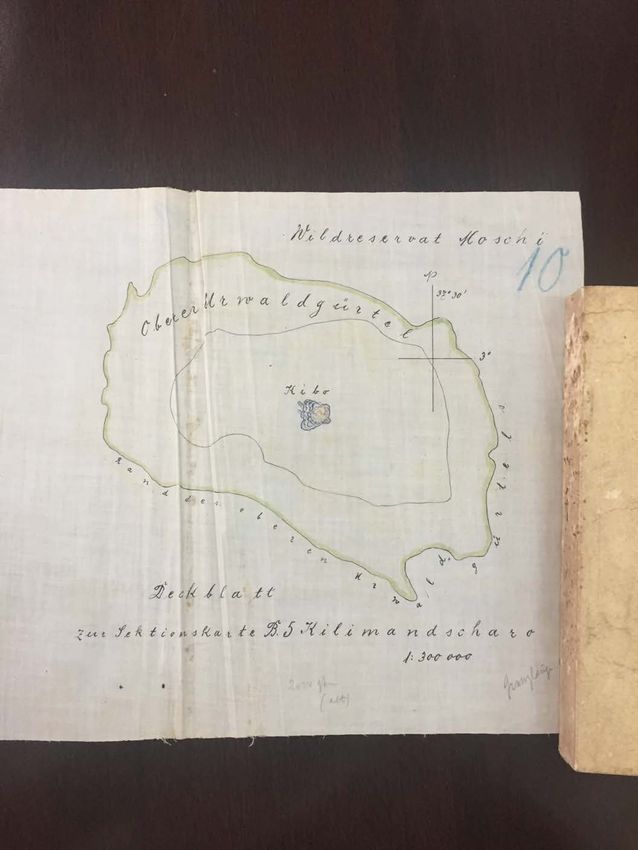 Wildreservat Moschi
10
37° 30'
Oberer Urwaldgürtel
3°
Kibo
rand des oberen Urwaldgürtels
Deckblatt
zur Sektionskarte B.5 Kilimandscharo
1:300 000
(alt)